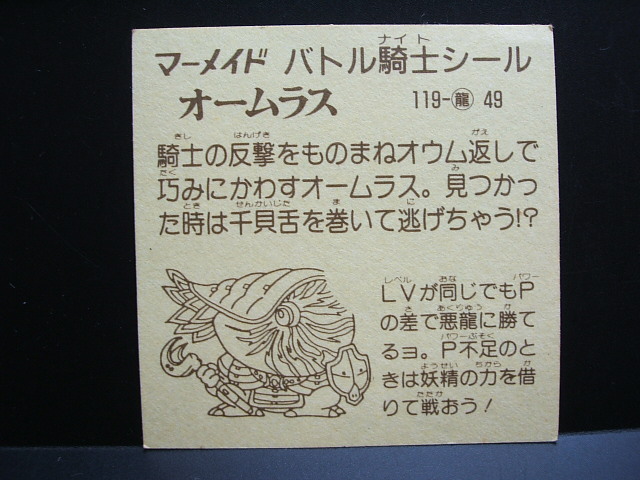 マーメイド バトル騎士シール
オームラス 119-龍 49
騎士の反撃をものまねオウム返しで
巧みにかわすオームラス。見つかっ
た時は千貝舌を巻いて逃げちゃう!?
LVが同じでもP
の差で悪龍に勝て
るョ。P不足のと
きは妖精の力を借
りて戦おう!